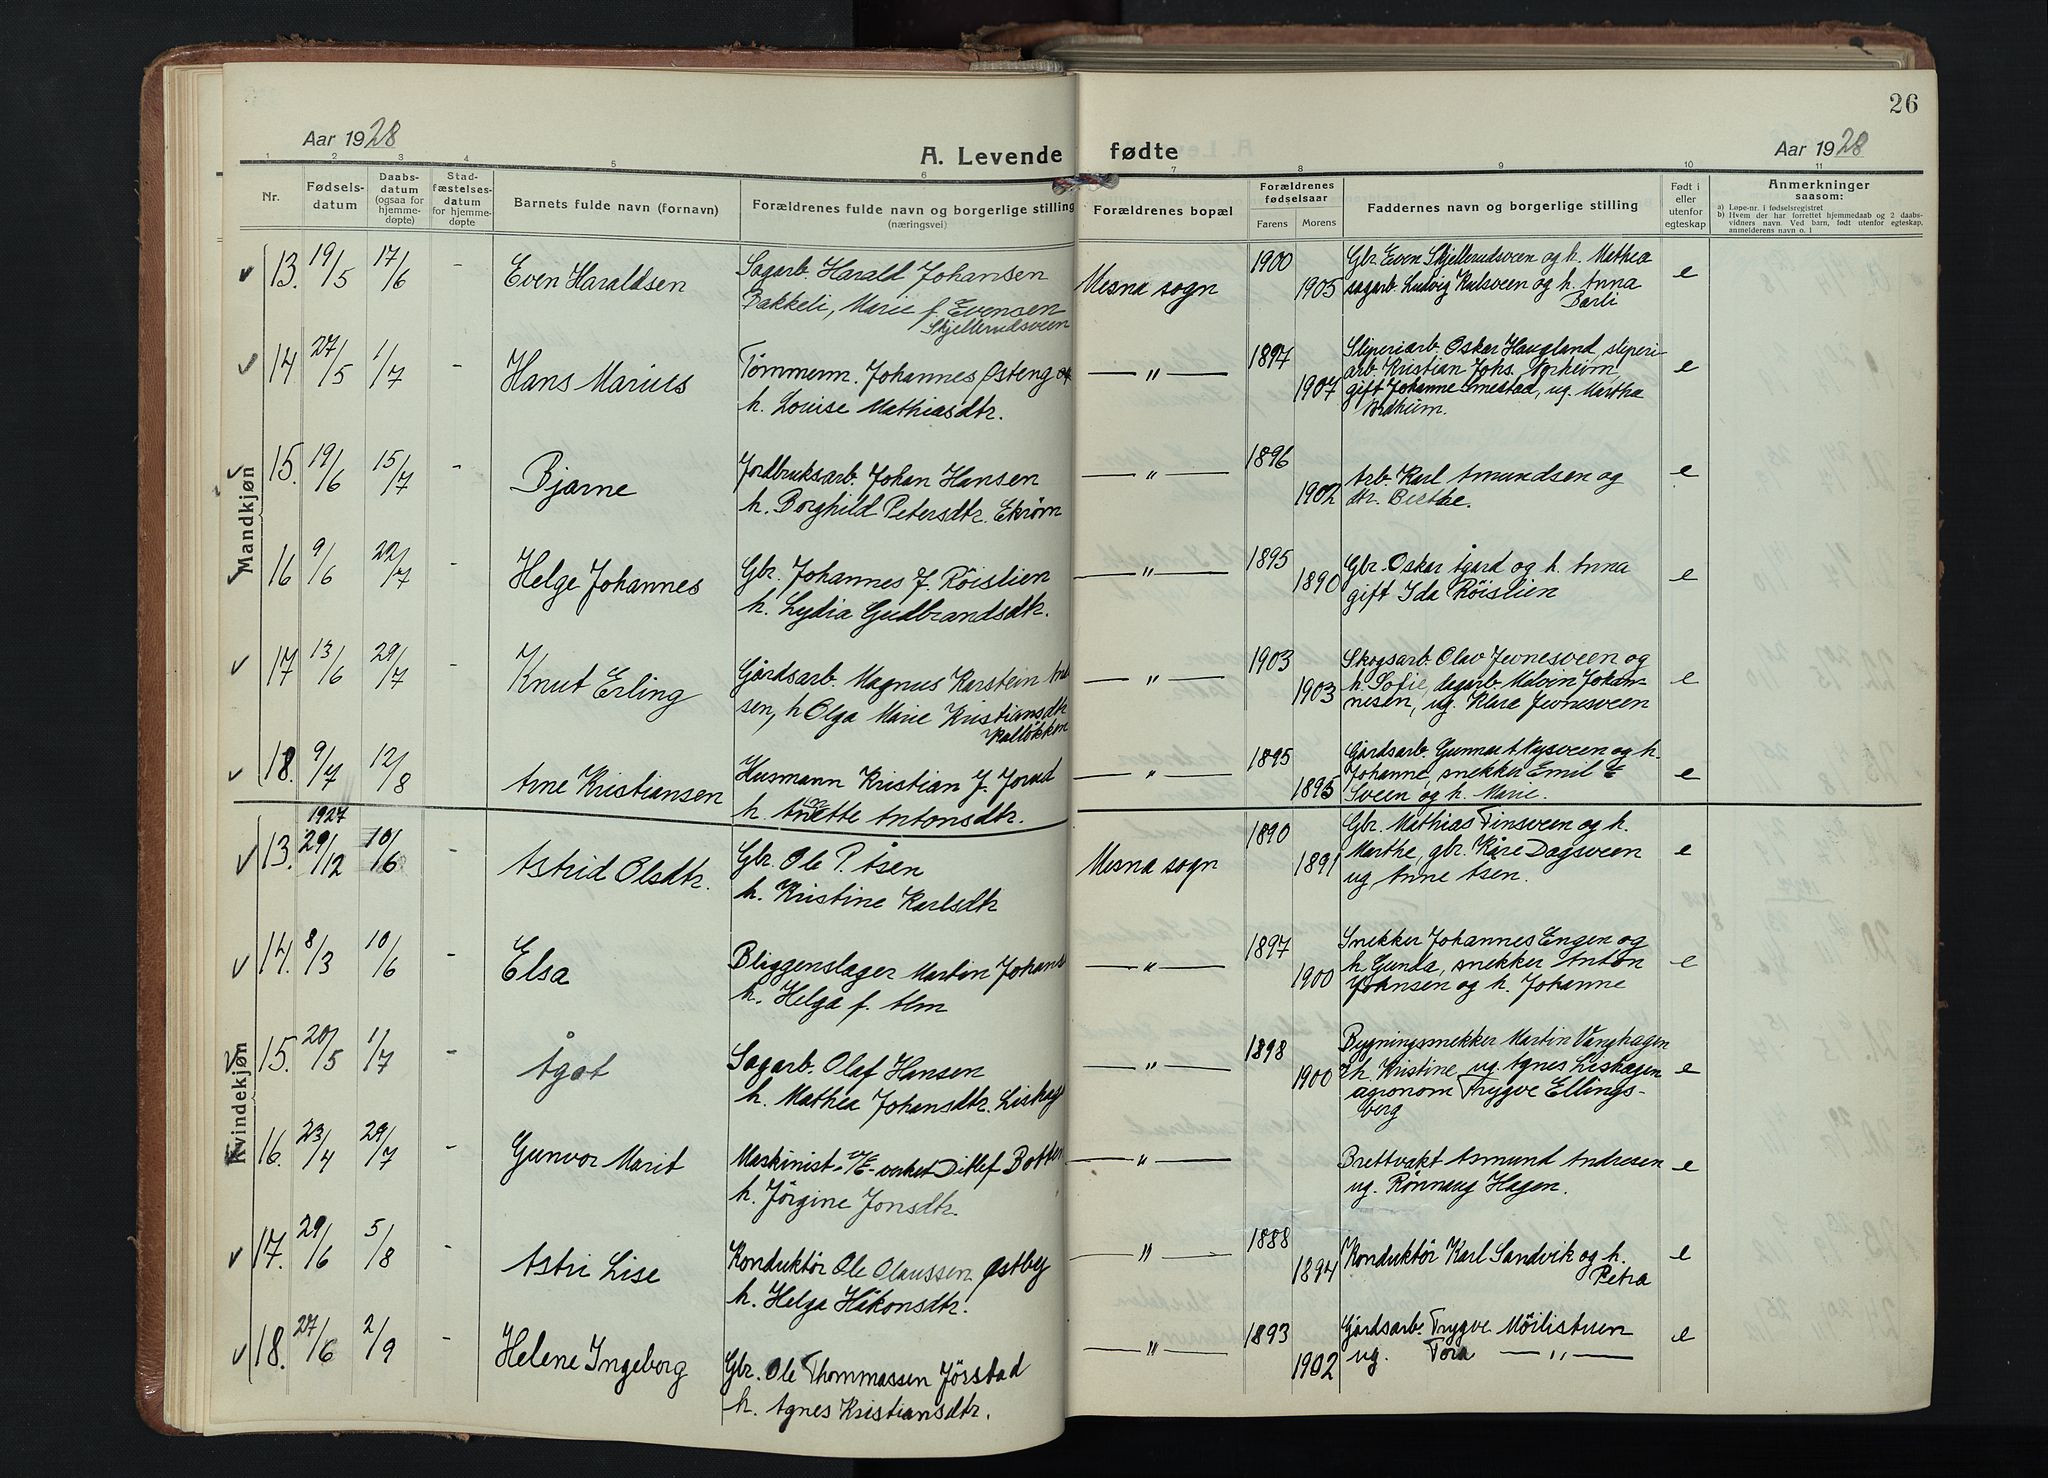 26
Aar 1928
A. Levende fødte
Aar 1928
1 2 3 4 5 6 7 8 9 10 11
Nr.
Fødselsdatum
Daabsdatum (ogsaa for hjemmedøpte)
Stadfæstelsesdatum for hjemmedøpte
Barnets fulde navn (fornavn)
Forældrenes fulde navn og borgerlige stilling (næringsvei)
Forældrenes bopæl
Forældrenes fødselsaar
Farens Morens
Faddernes navn og borgerlige stilling
Født i eller utenfor egteskap
Anmerkninger saasom:
a) Løpe-nr. i fødselsregistret
b) Hvem der har forrettet hjemmedaab og 2 daabsvidners navn. Ved barn, født utenfor egteskap, anmelderens navn o. l
Mandkjøn
13. 19/5 17/6 - Even Haraldsen
Sagarb. Harald Johansen
Bakkeli, Marie f. Evensen
Skjellerudsveen
Mesna sogn
1900
1905
Gbr. Even Skjellerudsveen og h. Mathea
sagarb. Ludvig Kulsveen og h. Anna
Barli
e
14. 27/5 1/7 - Hans Marius
Tømmerm. Johannes Østeng og
h. Louise Mathiasdtr.
— " —
1897
1907
Sliperiarb. Oskar Haugland, sliperi-
arb Kristian Johs. Norheim,
gift Johanne Smestad, ug. Martha
Nordheim.
e
15. 19/6 15/7 - Bjarne
Jordbruksarb. Johan Hansen
h. Borghild Petersdtr. Ekrøm
— " —
1896
1902
Arb. Karl Amundsen og
dtr. Berthe.
e
16 9/6 22/7 - Helge Johannes
Gbr. Johannes J. Röislien
h. Lydia Gudbrandsdtr.
— " —
1895
1890
Gbr. Oskar Ågård og h. Anna
gift Ida Röislien
e
17 13/6 29/7 - Knut Erling
Gårdsarb. Magnus Karstein
sen, h Olga Marie Kristiansdtr
— " —
1903
1903
Skogsarb. Olav Jevnesveen og
h. Sofie, dagarb. Malvin Johan-
nesen, ug. Klare Jevnesveen
e
18. 9/7 12/8 Arne Kristiansen
Husmann Kristian J. Jorud
h. Anette Antonsdtr.
— " —
1895
1895
Gårdsarb. Gunnar A. Nysveen og h.
Johanne, snekker Emil E
Sveen og h. Marie.
e
Kvindekjøn
1927
13. 29/12 10/6 Astrid Olsdtr.
Gbr. Ole P. Åsen
h. Kristine Karlsdtr
Mesna sogn
1890
1891
Gbr. Mathias Finsveen og h.
Marthe, gbr. Kåre Dagsveen
ug. Anne Åsen.
e
14. 8/3 10/6 - Elsa
Bliggenslager Martin Johans
h. Helga f. Alm
— " —
1897
1900
Snekker Johannes Engen og
h. Gunda, snekker Anton
Johnsen og h. Johanne
e
15. 20/5 1/7 - Ågot
Sagarb. Olaf Hansen
h. Mathea Johansdtr. Lishag
— " —
1898
1900
Bygningssnekker Martin Vanghagen
h. Kristine ug. Agnes Lishagen
agronom Trygve Ellings-
berg
e
16. 23/4 29/7 - Gunvor Marit
Maskinist v/E-verket Ditlef Botten
h. Jörgine Jonsdtr.
— " —
Brettvakt Asmund Andresen
ug. Rønnaug Hagen.
e
17. 29/6 5/8 - Astri Lise
Konduktör Ole Olaussen Østby
h. Helga Håkonsdtr.
— " —
1888
1894
Konduktör Karl Sandvik og h.
Petra
e
18. 27/6 2/9 - Helene Ingeborg
Gbr. Ole Thommassen Jörstad
h. Agnes Kristiansdtr.
— " —
1893
1902
Gårdsarb. Trygve Möilistuen
ug. Tora — " —
e